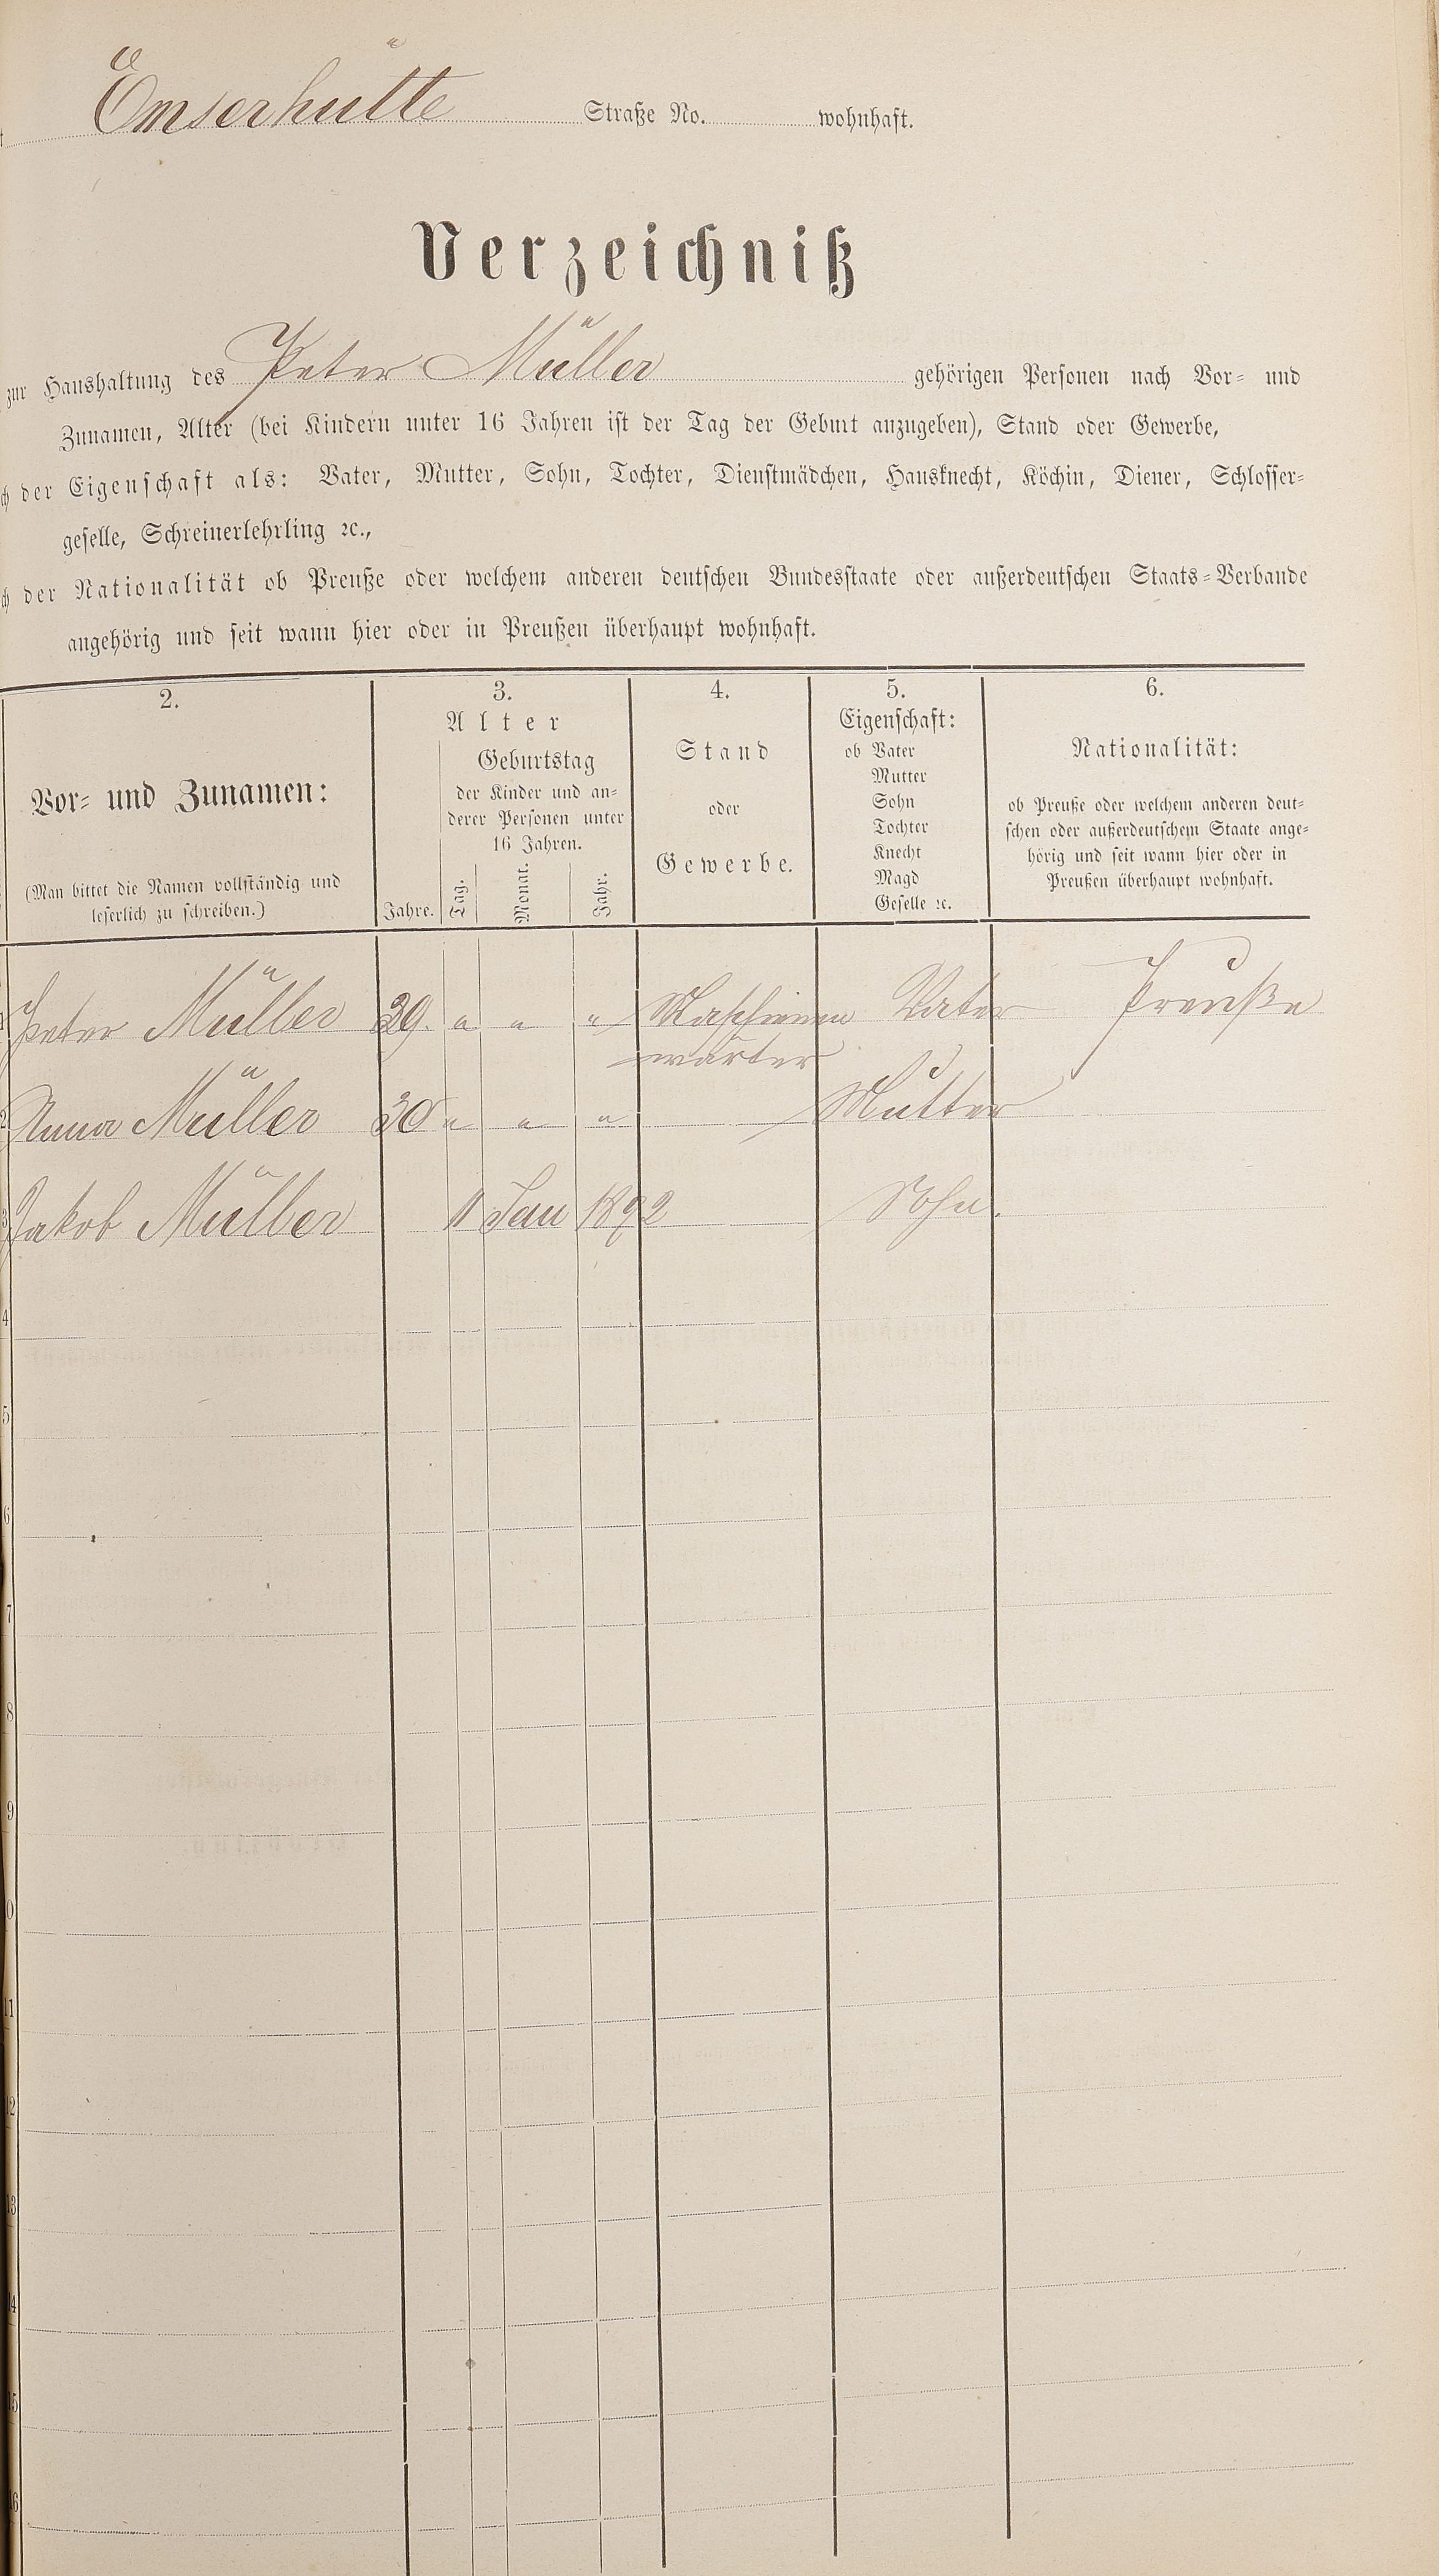 Emserhütte Straße No. wohnhaft.
Verzeichniß
zur Haushaltung des Peter Müller gehörigen Personen nach Vor- und
Zunamen, Alter (bei Kindern unter 16 Jahren ist der Tag der Geburt anzugeben), Stand oder Gewerbe,
der Eigenschaft als: Vater, Mutter, Sohn, Tochter, Dienstmädchen, Hausknecht, Köchin, Diener, Schlosser-
geselle, Schreinerlehrling ꝛc.,
der Nationalität ob Preuße oder welchem anderen deutschen Bundesstaate oder außerdeutschen Staats-Verbande
angehörig und seit wann hier oder in Preußen überhaupt wohnhaft.
2.
Vor- und Zunamen:
(Man bittet die Namen vollständig und
leserlich zu schreiben.)
3.
Alter
Geburtstag
der Kinder und an-
derer Personen unter
16 Jahren.
Jahre. Tag. Monat. Jahr.
4.
Stand
oder
Gewerbe.
5.
Eigenschaft:
ob Vater
Mutter
Sohn
Tochter
Knecht
Magd
Geselle ꝛc.
6.
Nationalität:
ob Preuße oder welchem anderen deut-
schen oder außerdeutschem Staate ange-
hörig und seit wann hier oder in
Preußen überhaupt wohnhaft.
1 Peter Müller 39. " " " Maschienen Vater Preuße
wärter
2 Anna Müller 30 " " " Mutter
3 Jakob Müller 11 Jan 1892 Sohn.
4
5
6
7
8
9
0
11
12
13
14
15
16